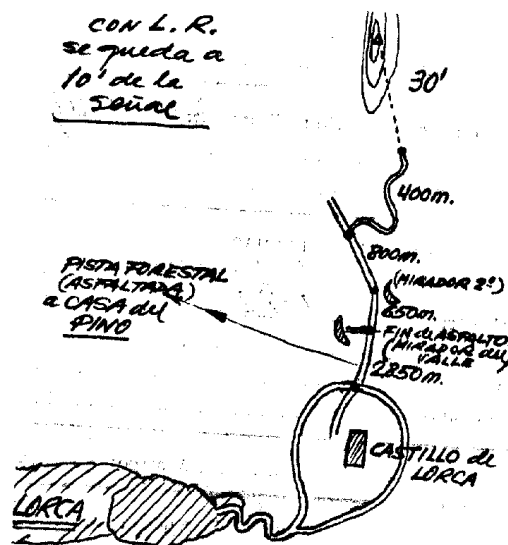 CON L. R.
se queda a
10' de la
señal
30'
400m.
800m.
(MIRADOR 2º)
650m.
FIN de ASPALTO
(MIRADOR del
VALLE
2850m.
PISTA FORESTAL
(ASFALTADA)
a CASA del
PINO
CASTILLO de
LORCA
LORCA